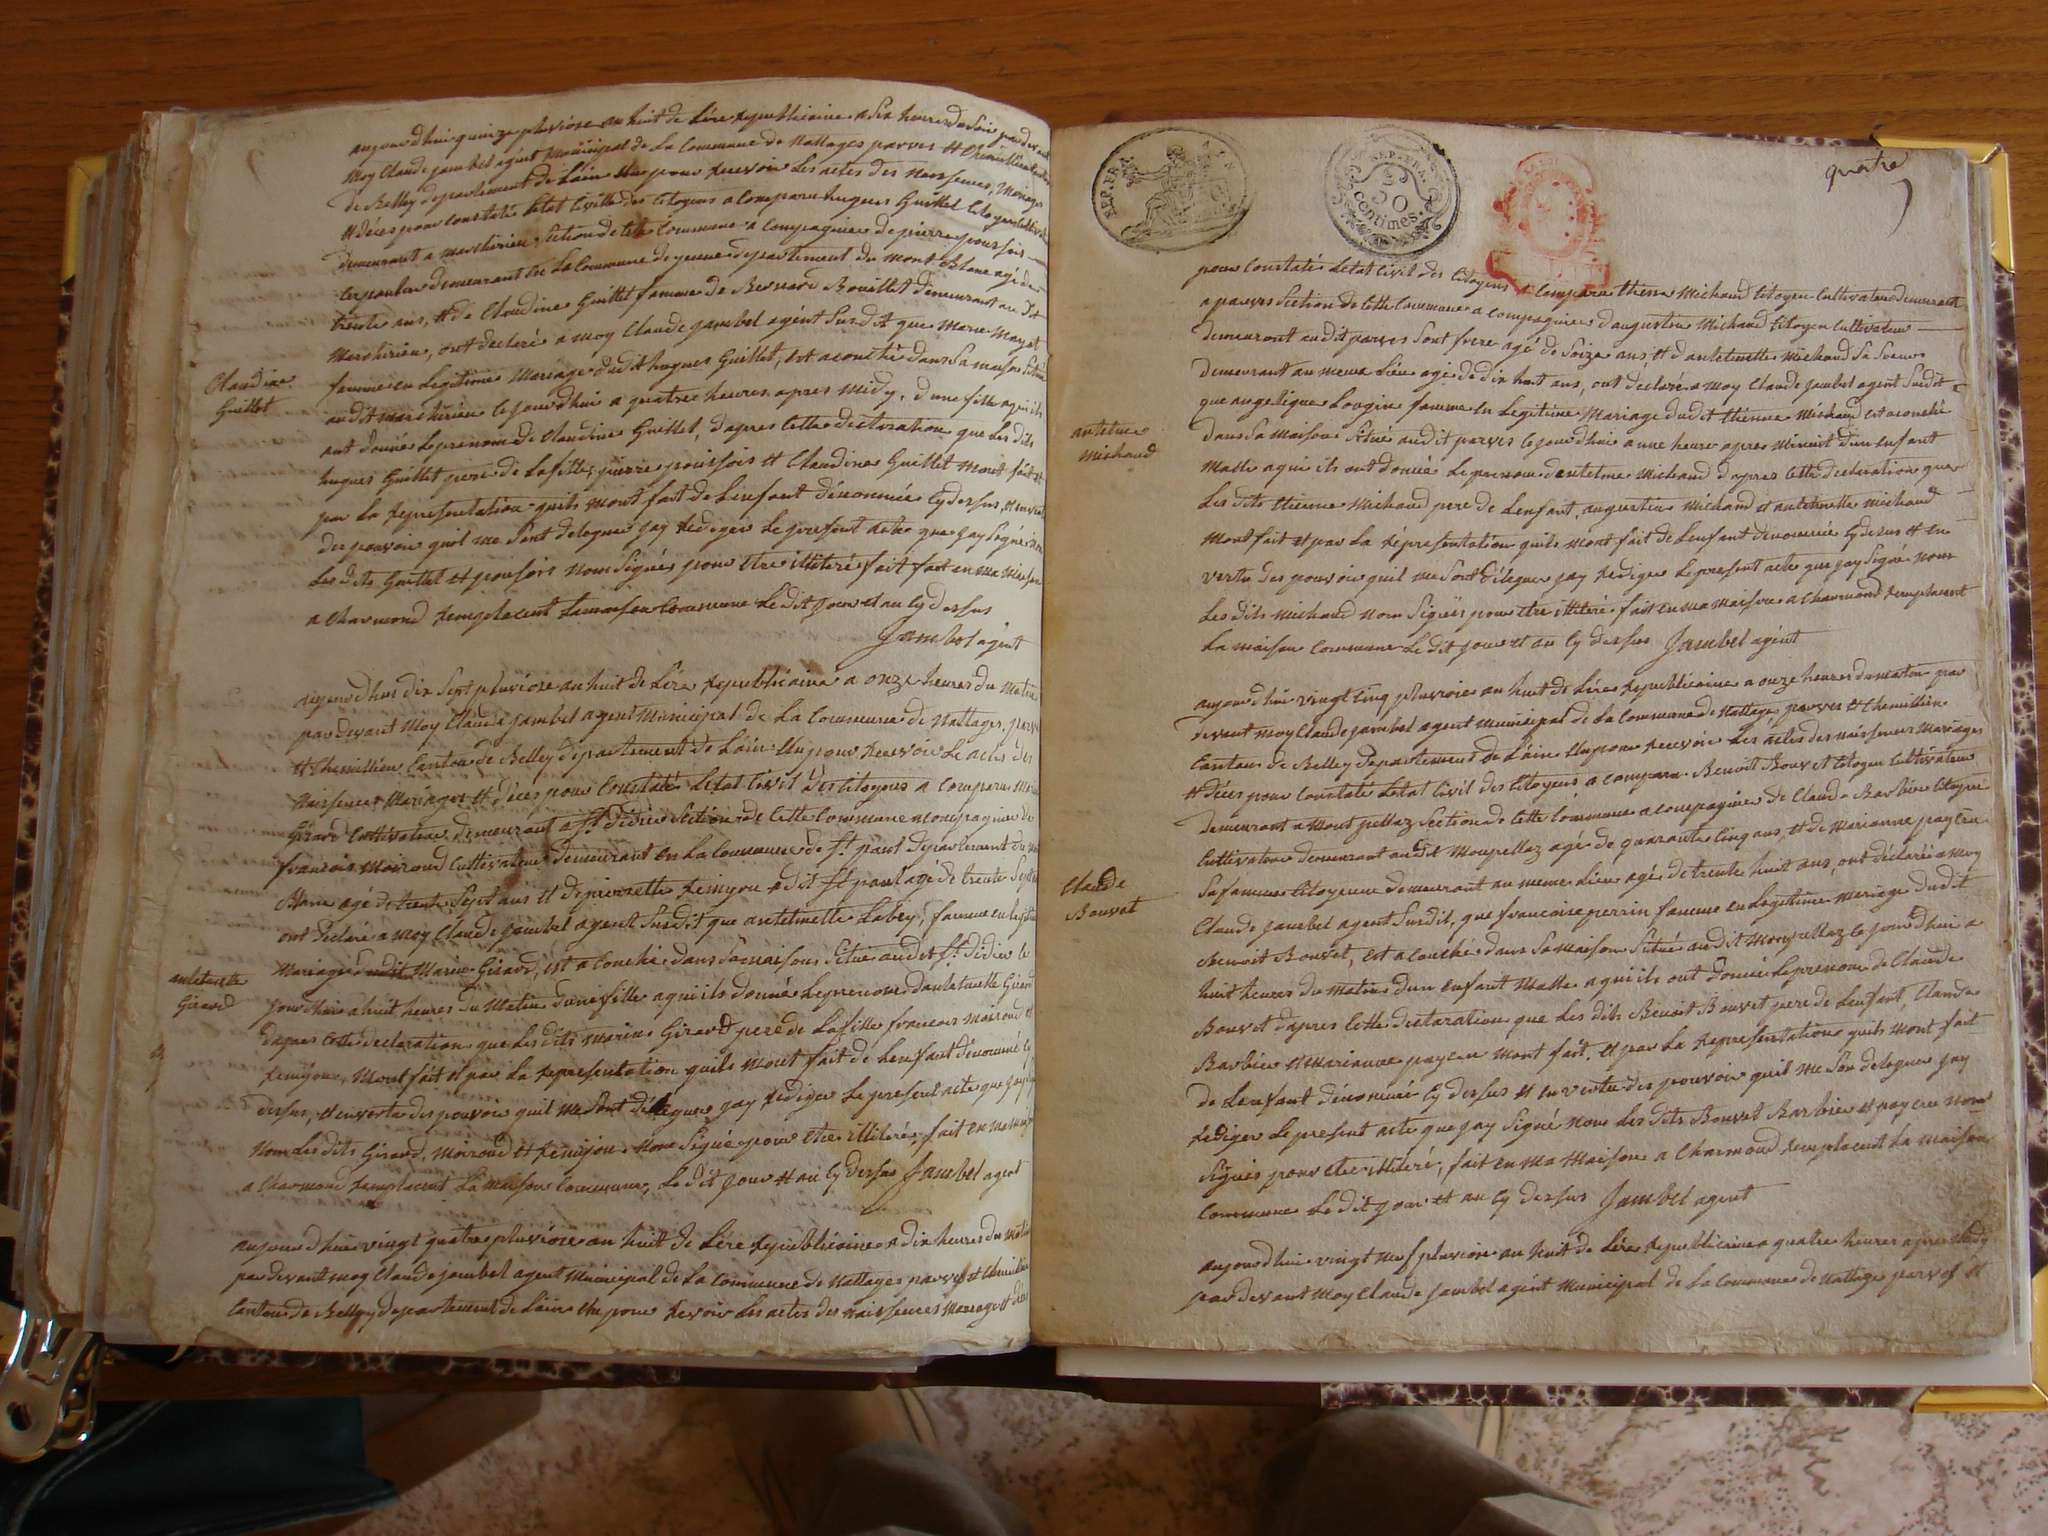 aujourdhui quinze pluviose an huit de Lére republicaine a six heures du Soir par devant
Moy Claude jambel agent Municipal de La Commune de Nattages parves et Chemillieu Canton
de Belley departement de Lain Elu pour Recevoir Les actes des Naissences, Mariages
et déces pour constaté Letat Civille des Citoyens a Comparu hugues Guillet Citoyen Cultivateur
demeurant a marchirieu, Section de cette Commune a Compagnier de pierre poursois
demeurant en La Commune de yenne departement du Mont Blanc agé de
trente ans, et de Claudine Guillet famme de Bernard Bouillet demeurant au Dit
Marchirieu, ont declaré a moy Claude jambel agent Surdit que Marie Mayet
famme en Legitime Mariage dudit hugues Guillet, est acouchée dans Sa maison Située
audit marchirieu ce jourdhui a quatre heures apres Midy, d'une fille a qui ils
ont donnée Le prenom de Claudine Guillet, dapres cette declaration que Les dits
hugues Guillet pere de La fille, pierre poursois et Claudine Guillet Mont fait et
par La Representation quils Mont fait de Lenfant dénommée Cy dessus, et en vertu
des pouvoir quil me Sont delegue jay Rediger Le present acte que jay Signé non
Les dits Guillet et poursois Nom Signés pour etre illiteré fait fait en ma maison
a Charmond Remplacent La maison Commune Le dit jour et an Cy dessus
Jambel agent
Claudine
Guillet
aujourdhui dix Sept pluviose an huit de Lére Republicaine a onze heures du Matin
par devant Moy Claude jambel agent Municipal de La Commune de Nattages, parves
et Chemillieu Canton de Belley departement de Lain Elu pour Recevoir Le actes des
Naissences Mariages et déces pour Constaté Letat Civil des Citoyens a Comparu Marin
Girard Cultivateur demeurant a St. Didier Section de Cette Commune a Compagnier de
francois Moiroud Cultivateur demeurant en La Commune de St. paul departement du Mont
Blanc agé de trente Sept ans et de pierrette Remyon audit St. paul agé de trente Sept
ont declaré a moy Claude jambel agent Surdit que antelmette Labey, famme en Legitime
Mariage dudit Marin Girard, est a Couchée dans Sa maison Située audit St. Didier le
jourdhui a huit heures du Matin d'une fille a qui ils donné Le prenom dantelmette Girard
dapres cette declaration que Les dits Marin Girard pere de La fille francois Moiroud et
Remyon, Mont fait et par La Representation quils Mont fait de Lenfant dénommé Cy
dessus, et en vertu des pouvoir quil me Sont délegue jay Rediger Le present acte que jay
Nom Les dits Girard, Moiroud et Remyon Nom Signé pour etre illiteré, fait en ma maison
a Charmond Remplacent La maison Commune, Le dit jour et an Cy dessus Jambel agent
antelmette
Girard
aujourdhui vingt quatre pluviose an huit de Lére Republicaine a dix heures du Matin
par devant moy Claude jambel agent Municipal de La Commune de Nattages parves et Chemillieu
Canton de Belley departement de Lain Elu pour Revoir Les actes des naissences Mariages et déces
REP. FRA.
REP. FRA.
50
centimes.
quatre
pour Constaté Letat Civil des Citoyens a Comparu Etienne Michaud Citoyen Cultivateur demeurant
a parves Section de Cette Commune a Compagnier d'augustin Michaud Citoyen Cultivateur
demeurant audit parves Sont frere agé de Seize ans et dantelmette Michaud Sa Soeur
demeurant au meme Lieu agé de dix huit ans, ont déclaré a Moy Claude jambel agent Surdit
que angelique Lougin famme en Legitime Mariage dudit Etienne Michaud est acouchée
dans Sa Maison Située audit parves Ce jourdhui a une heure apres Minuit d'un enfant
Masle a qui ils ont Donnée Le prenom dantelme Michaud dapres Cette declaration que
Les dits Etienne Michaud pere de Lenfant, augustin Michaud et antelmette Michaud
Mont fait et par La Représentation quils Mont fait de Lenfant dénommé Cy dessus et en
vertu des pouvoir quil me Sont délegue jay Rediger Le present acte que jay Signé Nom
Les dits Michaud Nom Signés pour etre illiteré, fait en ma Maison a Charmond Remplacent
La maison Commune Le dit jour et an Cy dessus Jambel agent
antelme
Michaud
aujourdhui vingt Cinq pluviose an huit de Lére Republicaine a onze heures du matin par
devant Moy Claude jambel agent Municipal de La Commune de Nattages parves et Chemillieu
Canton de Belley Departement de Lain Elu pour Recevoir Les actes des naissences Mariages
et déces pour Constaté Letat Civil des Citoyens a Comparu Benoit Bouvet Citoyen Cultivateur
demeurant a Mont pellaz Section de Cette Commune a Compagnier de Claude Barbier Citoyen
Cultivateur demeurant audit Monpellaz agé de quarante Cinq ans, et de Marianne payen
Sa famme Citoyenne demeurant au meme Lieu agé de trente huit ans, ont déclaré a Moy
Claude jambel agent Surdit, que francoise perrin famme en Legitime Mariage dudit
Benoit Bouvet, est a Couchée dans Sa maison Située audit Monpellaz Ce jourdhui a
huit heures du Matin d'un enfant Malle a qui ils ont donnée Le prenom de Claude
Bouvet dapres Cette declaration que Les dits Benoit Bouvet pere de Lenfant, Claude
Barbier et marianne payen Mont fait. et par La Representation quils Mont fait
de Lenfant dénommé Cy dessus et en vertu des pouvoir quil me Son delegue jay
Rediger Le present acte que jay Signé Nom Les dits Bouvet Barbier et payen Nom
Signés pour etre illiteré, fait en Ma Maison a Charmond Remplacent La maison
Commune Le dit jour et an Cy dessus Jambel agent
Claude
Bouvet
aujourdhui vingt Neuf pluviose an huit de Lére Republicaine a quatre heures apres Midy
par devant Moy Claude jambel agent Municipal de La Commune de Nattages parves et